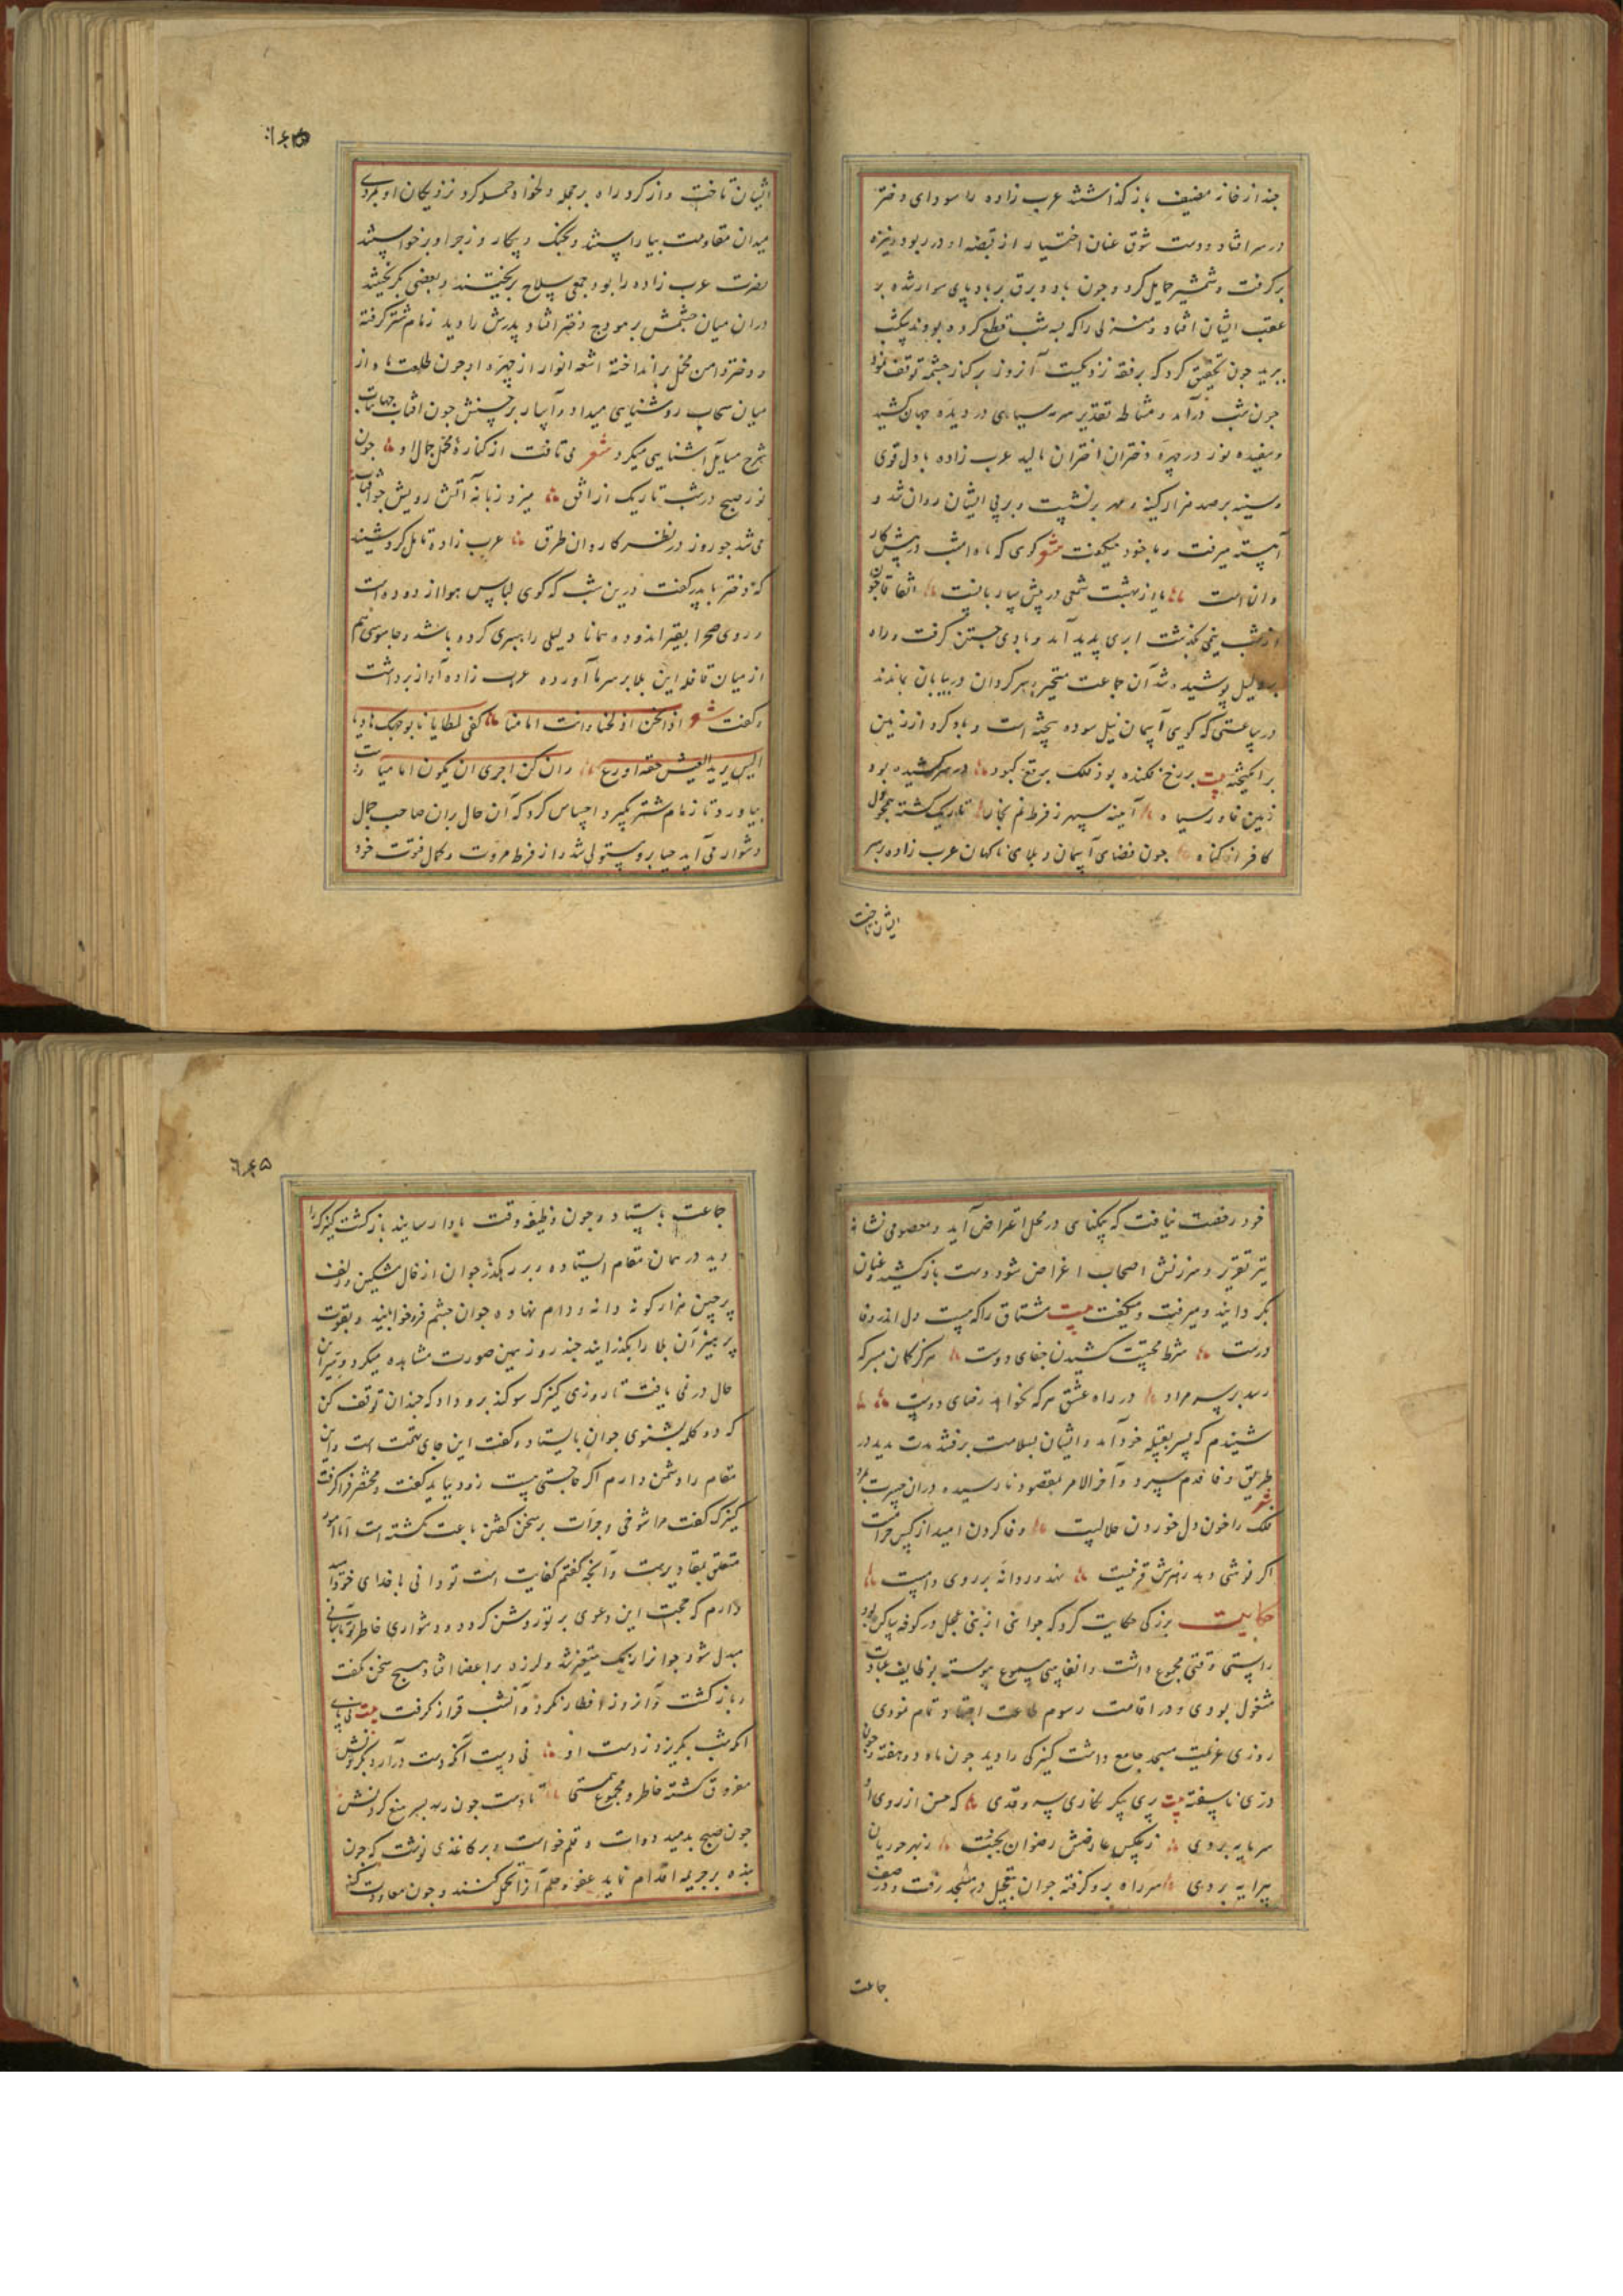 چند از خانه مضیف باز گذاشتند عرب زاده را سودای دختر
در سر افتاد و دست شوق عنان اختیار از قبضه او در ربود و نیزه
برگرفت و شمشیر حمایل کرد و چون باد و برق بر باد پای سوار شده بر
عقب ایشان افتاد و منزلی را که به شب قطع کرده بودند بیکشب
ببرید چون تحقیق کرد که برفقه نزدیکست آنروز بر کنار چشمه توقف نمود
چون شب درآمد و مشاطه تقدیر سرمه سیاهی در دیده جهان کشید
و سفیده نور در چهره دختران اختران مالید عرب زاده با دل قوی
و سینه بر صد هزار کینه و مهر برنشست و بر پی ایشان روان شد و
آهسته میرفت و با خود میگفت شعر گوی که ماه امشب در پیش کار
وان است یا از بهشت شمعی در پیش ساربانست اتفاقا چون
از شب نیمی بگذشت ابری پدید آمد و بادی جستن گرفت و راه
لیل پوشیده شد آن جماعت متحیر و سرگردان در بیابان بماندند
در ساعتی که گویی آسمان نیل سوده بیخته است و باد گرد از زمین
برانگیخته بیت بر رخ فکنده بود فلک برقع کبود در سر کشیده بود
زمین چادر سیاه آینه سپهر ز فرط غم بخار تاریک گشته همچو دل
کافر از گناه چون قضای آسمان و بلای ناگهان عرب زاده بر سر
ایشان تاخت
۶۴۵
ایشان تاخت و از گرد راه بر جمله دلخواه حمله کرد نزدیکان او بمردی
میدان مقاومت بیاراستند و بجنگ و پیکار و زجر او برخواستند
نصرت عرب زاده را بود جمعی سلاح بریختند و بعضی بگریختند
در ان میان چشمش بر هودج دختر افتاد پدرش را دید زمام شتر گرفته
و دختر دامن محمل برانداخته اشعه انوار از چهره او چون طلعت ماه از
میان سحاب روشنایی میداد و آثار بر جبینش چون افتاب جهانتاب
شرح مسایل آشنایی میکرد شعر می تافت از کناره محمل جمال او چون
نور صبح در شب تاریک از افق میزد زبانه آتش رویش چو آفتاب
می شد چو روز در نظر کاروان طرق عرب زاده تامل کرد شنید
که دختر با پدر گفت درین شب که گوی لباس هوا از دوده است
و روی صحرا بقیر اندوده همانا دلیلی را هبری کرده باشد و جاسوسی هم
از میان قافله این بلا بر سر ما آورده عرب زاده آواز برداشت
و گفت شعر اذا نحن ادلجنا وانت امامنا کفی لمطایانا بوجهک هادیا
الیس یزید العیس خفة اذرع وان کن اجری ان یکون امامیا دست
بیاورد تا زمام شتر بگیرد احساس کرد که آن حال بران صاحب جمال
دشوار می آید حیا برو مستولی شد از فرط مروت و کمال فتوت خود
خود رخصت نیافت که بیگناهی در محل اعتراض آید و معصومی نشانه
تیر تعزیر و سرزنش اصحاب اغراض شود دست باز کشید و عنان
بگردانید و میرفت و میگفت بیت مشتاق را که هست دل اندر وفا
درست شرط محبتست کشیدن جفای دوست هرگز گمان مبر که
رسد بر سر مراد در راه عشق هر که نخواهد رضای دوست
شنیدم که پسر بقبیله خود آمد و ایشان بسلامت برفتند مدت مدید در
طریق وفا قدم سپرد و آخر الامر بمقصود نارسیده دران حسرت بمرد
شعر
فلک را خون دل خوردن حلالیست وفا کردن امید از کس حرامست
اگر نوشی دهد زهرش قرینست نهد در دانه بر روی دامیست
حکایت بزرگی حکایت کرد که جوانی از بنی عجل در کوفه ساکن بود
راستی وقتی مجموع داشت و انفاسی مسموع پیوسته بوظایف عبادت
مشغول بودی و در اقامت رسوم طاعت اجتهاد تمام نمودی
روزی عزیمت مسجد جامع داشت کنیزکی را دید چون ماه دو هفته و چون
دری ناسفته بیت پری پیکر نگاری سرو قدی که حسن از روی او
سرمایه بردی ز عکس عارضش رضوان بجنت ز بهر حوریان
پیرایه بردی سر راه برو گرفته جوان بتعجیل در مسجد رفت و در صف
جماعت
۶۴۵
جماعت بایستاد و چون وظیفه وقت بادا رسانید بازگشت کنیزک را
دید در همان مقام ایستاده و بر رهگذر جوان از خال مشکین و زلف
پر چین هزار گونه دانه و دام نهاده جوان چشم فرو خوابانید و بقوت
پرهیز آن بلا را بگذرانید چند روز همین صورت مشاهده میکرد و سر آن
حال در نمی یافت تا روزی کنیزک سوگند برو داد که چندان توقف کن
که دو کلمه بشنوی جوان بایستاد و گفت این جای تهمت است و این
مقام را دشمن دارم اگر حاجتی هست زود بباید گفت و مختصر فرا گرفت
کنیزک گفت مرا شوخی و جرات بر سخن گفتن باعث نگشته است اما امور
متعلق بمقادیرست و آنچه گفتم کفایت است تو دانی با خدای خود امید
دارم که حجت این دعوی بر تو روشن گردد و دشواری خاطر تو باسانی
مبدل شود جوانرا رنگ متغیر شد و لرزه بر اعضا افتاد و هیچ سخن نگفت
و بازگشت و آنروز افطار نکرد و آنشب قرار نگرفت بیت نی پای
آنکه شب بگریزد ز دست او نی دست آنکه دست درآرد بگردنش
مغروق گشته خاطر و مجموع هستی تا دست چون رسد بسر منع کردنش
چون صبح بدمید دوات و قلم خواست و بر کاغذی نوشت که چون
بنده بر جریمه اقدام نماید عفو و حلم آنرا تحمل کنند و چون معاودت کند